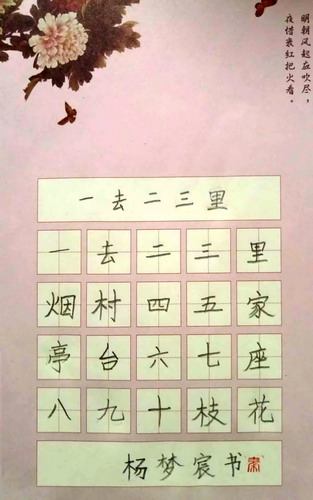 明朝风起应吹尽，
夜惜衰红把火看。
一去二三里
一去二三里
烟村四五家
亭台六七座
八九十枝花
杨梦宸书